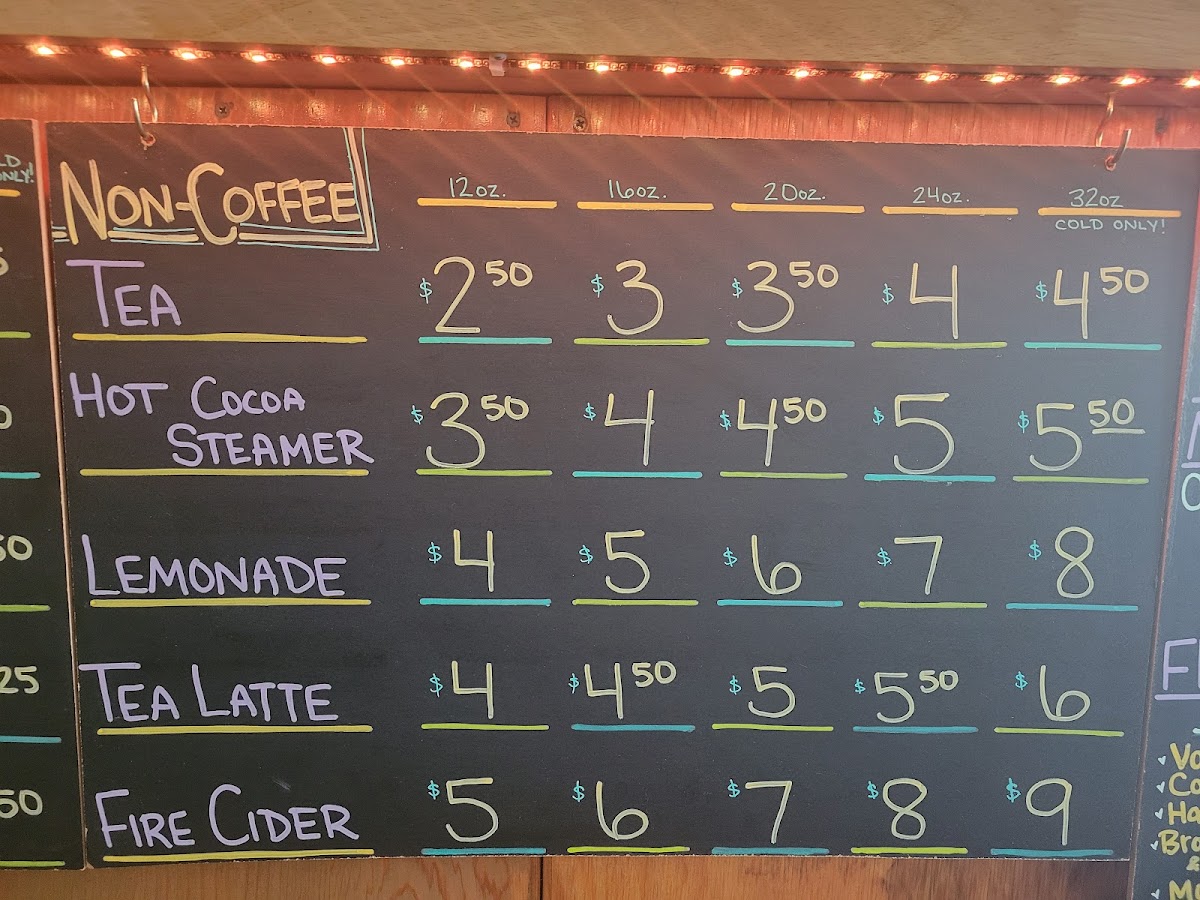 NON-COFFEE 12oz. 16oz. 20oz. 24oz. 32oz
COLD ONLY!
TEA $2 50 $3 $3 50 $4 $4 50
HOT COCOA
STEAMER $3 50 $4 $4 50 $5 $5 50
LEMONADE $4 $5 $6 $7 $8
TEA LATTE $4 $4 50 $5 $5 50 $6
FIRE CIDER $5 $6 $7 $8 $9
ONLY!
50
25
50
&